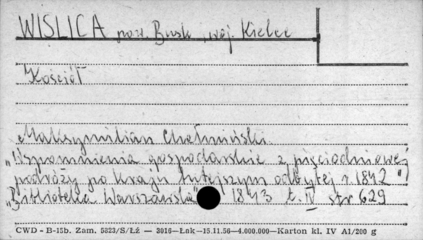 WIŚLICA pow. Busk, woj. Kielce
Kościół
Maksymilian Chełmiński.
„Wspomnienia gospodarskie z pięciodniowej
podróży po kraju tutejszym odbytej r. 1842"
„Biblioteka Warszawska" 1843 t. IV str 629
CWD - B-15b. Zam. 5323/S/Łź — 3016—Łsk—15.11.56—4.000.000—Karton kl. IV A1/200 g